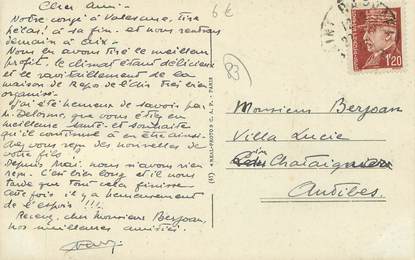 Cher Ami -
Notre congé à Valescure, tire
hélas! à sa fin - et nous rentrons
demain à Aix -
Nous en avons tiré le meilleur
profit, le climat étant délicieux
et le ravitaillement de la
maison de Repos de l'Air très bien
organisé -
J'ai été heureux de savoir par
M. Delorme, que vous étiez en
meilleure santé - et souhaite
qu'il continue à en être ainsi -
Avez vous reçu des nouvelles de
votre fils
Depuis Mai, nous n'avons rien
reçu - c'est bien long et il nous
tarde que tout cela finisse
Cette fois il y a heureusement
de l'espoir !!!
Recevez, cher Monsieur Berjoan,
nos meilleures amitiés -
6 €
83
(67) "REAL-PHOTO" C. A. P. - PARIS
POSTES
1F20
Monsieur Berjoan
Villa Lucie
Chataignier
Antibes